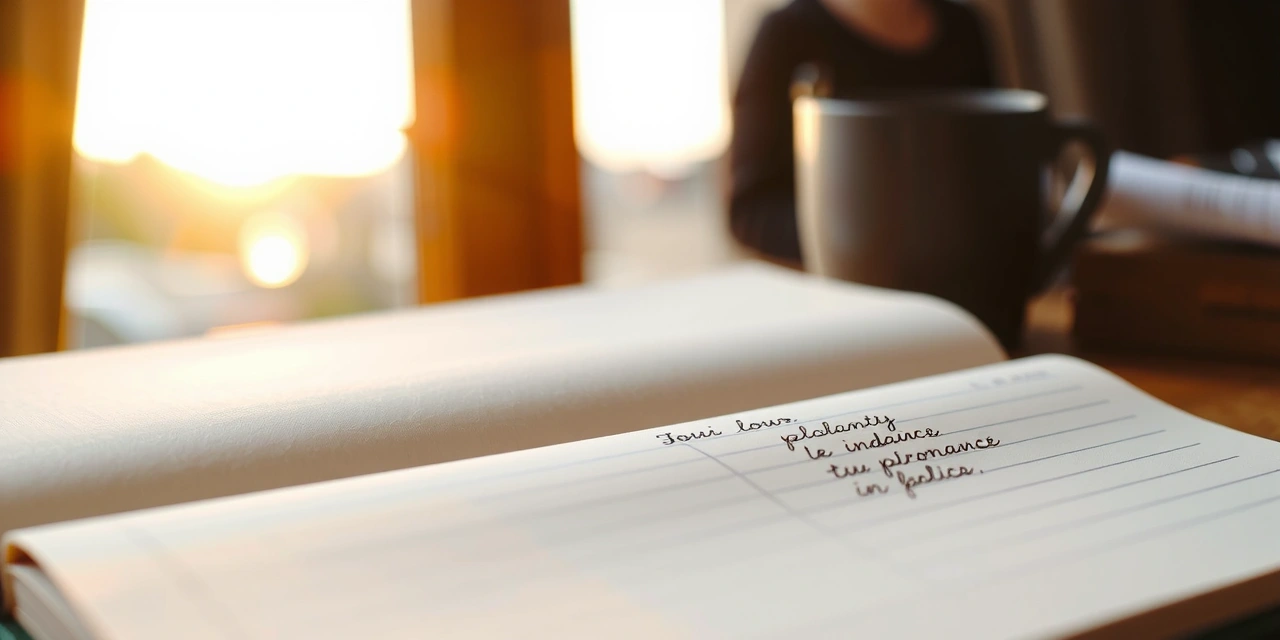 Joui lous.
plolanty
le indance
tuu pironance
in falice.